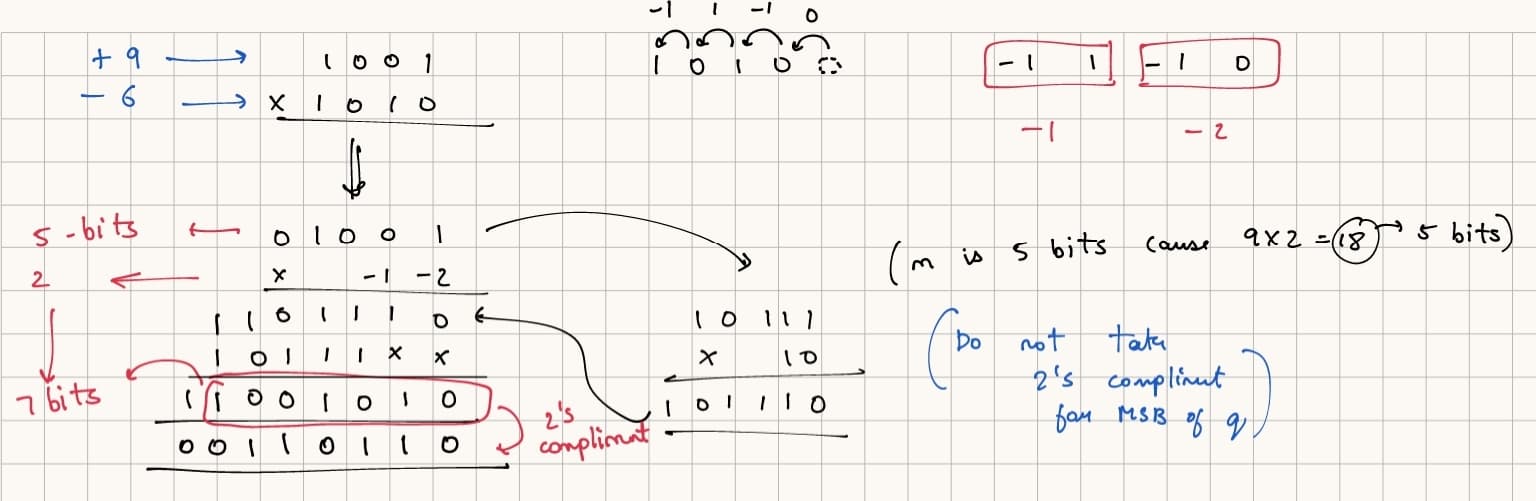 -1 1 -1 0
+ 9 → 1 0 0 1
1 0 1 0
- 1 1 - 1 0
- 6 → x 1 0 1 0
-1 - 2
5 -bits ← 0 1 0 0 1
(m is 5 bits cause 9x2 = 18 → 5 bits)
2 ← x -1 -2
1 1 0 1 1 1 0
1 0 1 1 1
1 0 1 1 1 x x
x 1 0
7 bits
1 1 0 0 1 0 1 0
1 0 1 1 1 0
2's
compliment
0 0 1 1 0 1 1 0
(Do not take
2's compliment
for MSB of q)